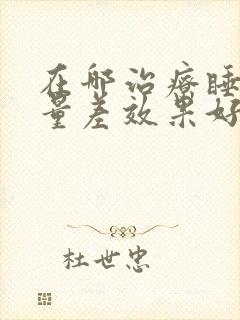 在哪治疗睡
量差效果好
杜世忠